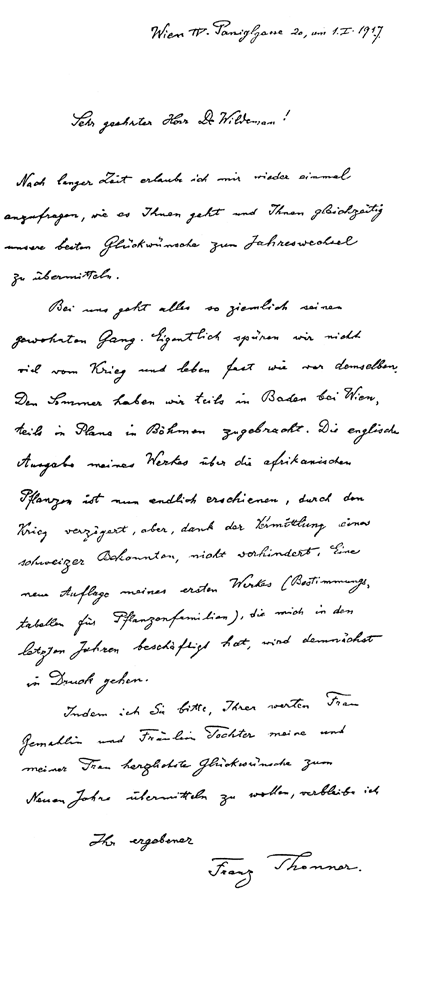 Wien IV. Paniglgasse 20, am 1.I.1917.
Sehr geehrter Herr Dr Wildeman!
Nach langer Zeit erlaube ich mir wieder einmal
anzufragen, wie es Ihnen geht und Ihnen gleichzeitig
unsere besten Glückwünsche zum Jahreswechsel
zu übermitteln.
Bei uns geht alles so ziemlich seinen
gewohnten Gang. Eigentlich spüren wir nicht
viel vom Krieg und leben fast wie vor demselben.
Den Sommer haben wir teils in Baden bei Wien,
teils in Plana in Böhmen zugebracht. Die englische
Ausgabe meines Werkes über die afrikanischen
Pflanzen ist nun endlich erschienen, durch den
Krieg verzögert, aber, dank der Vermittlung eines
schweizer Bekannten, nicht verhindert. Eine
neue Auflage meines ersten Werkes (Bestimmungs-
tabellen für Pflanzenfamilien), die mich in den
letzten Jahren beschäftigt hat, wird demnächst
in Druck gehen.
Indem ich Sie bitte, Ihrer werten Frau
Gemahlin und Fräulein Tochter meine und
meiner Frau herzlichste Glückwünsche zum
Neuen Jahre übermitteln zu wollen, verbleibe ich
Ihr ergebener
Franz Thonner.